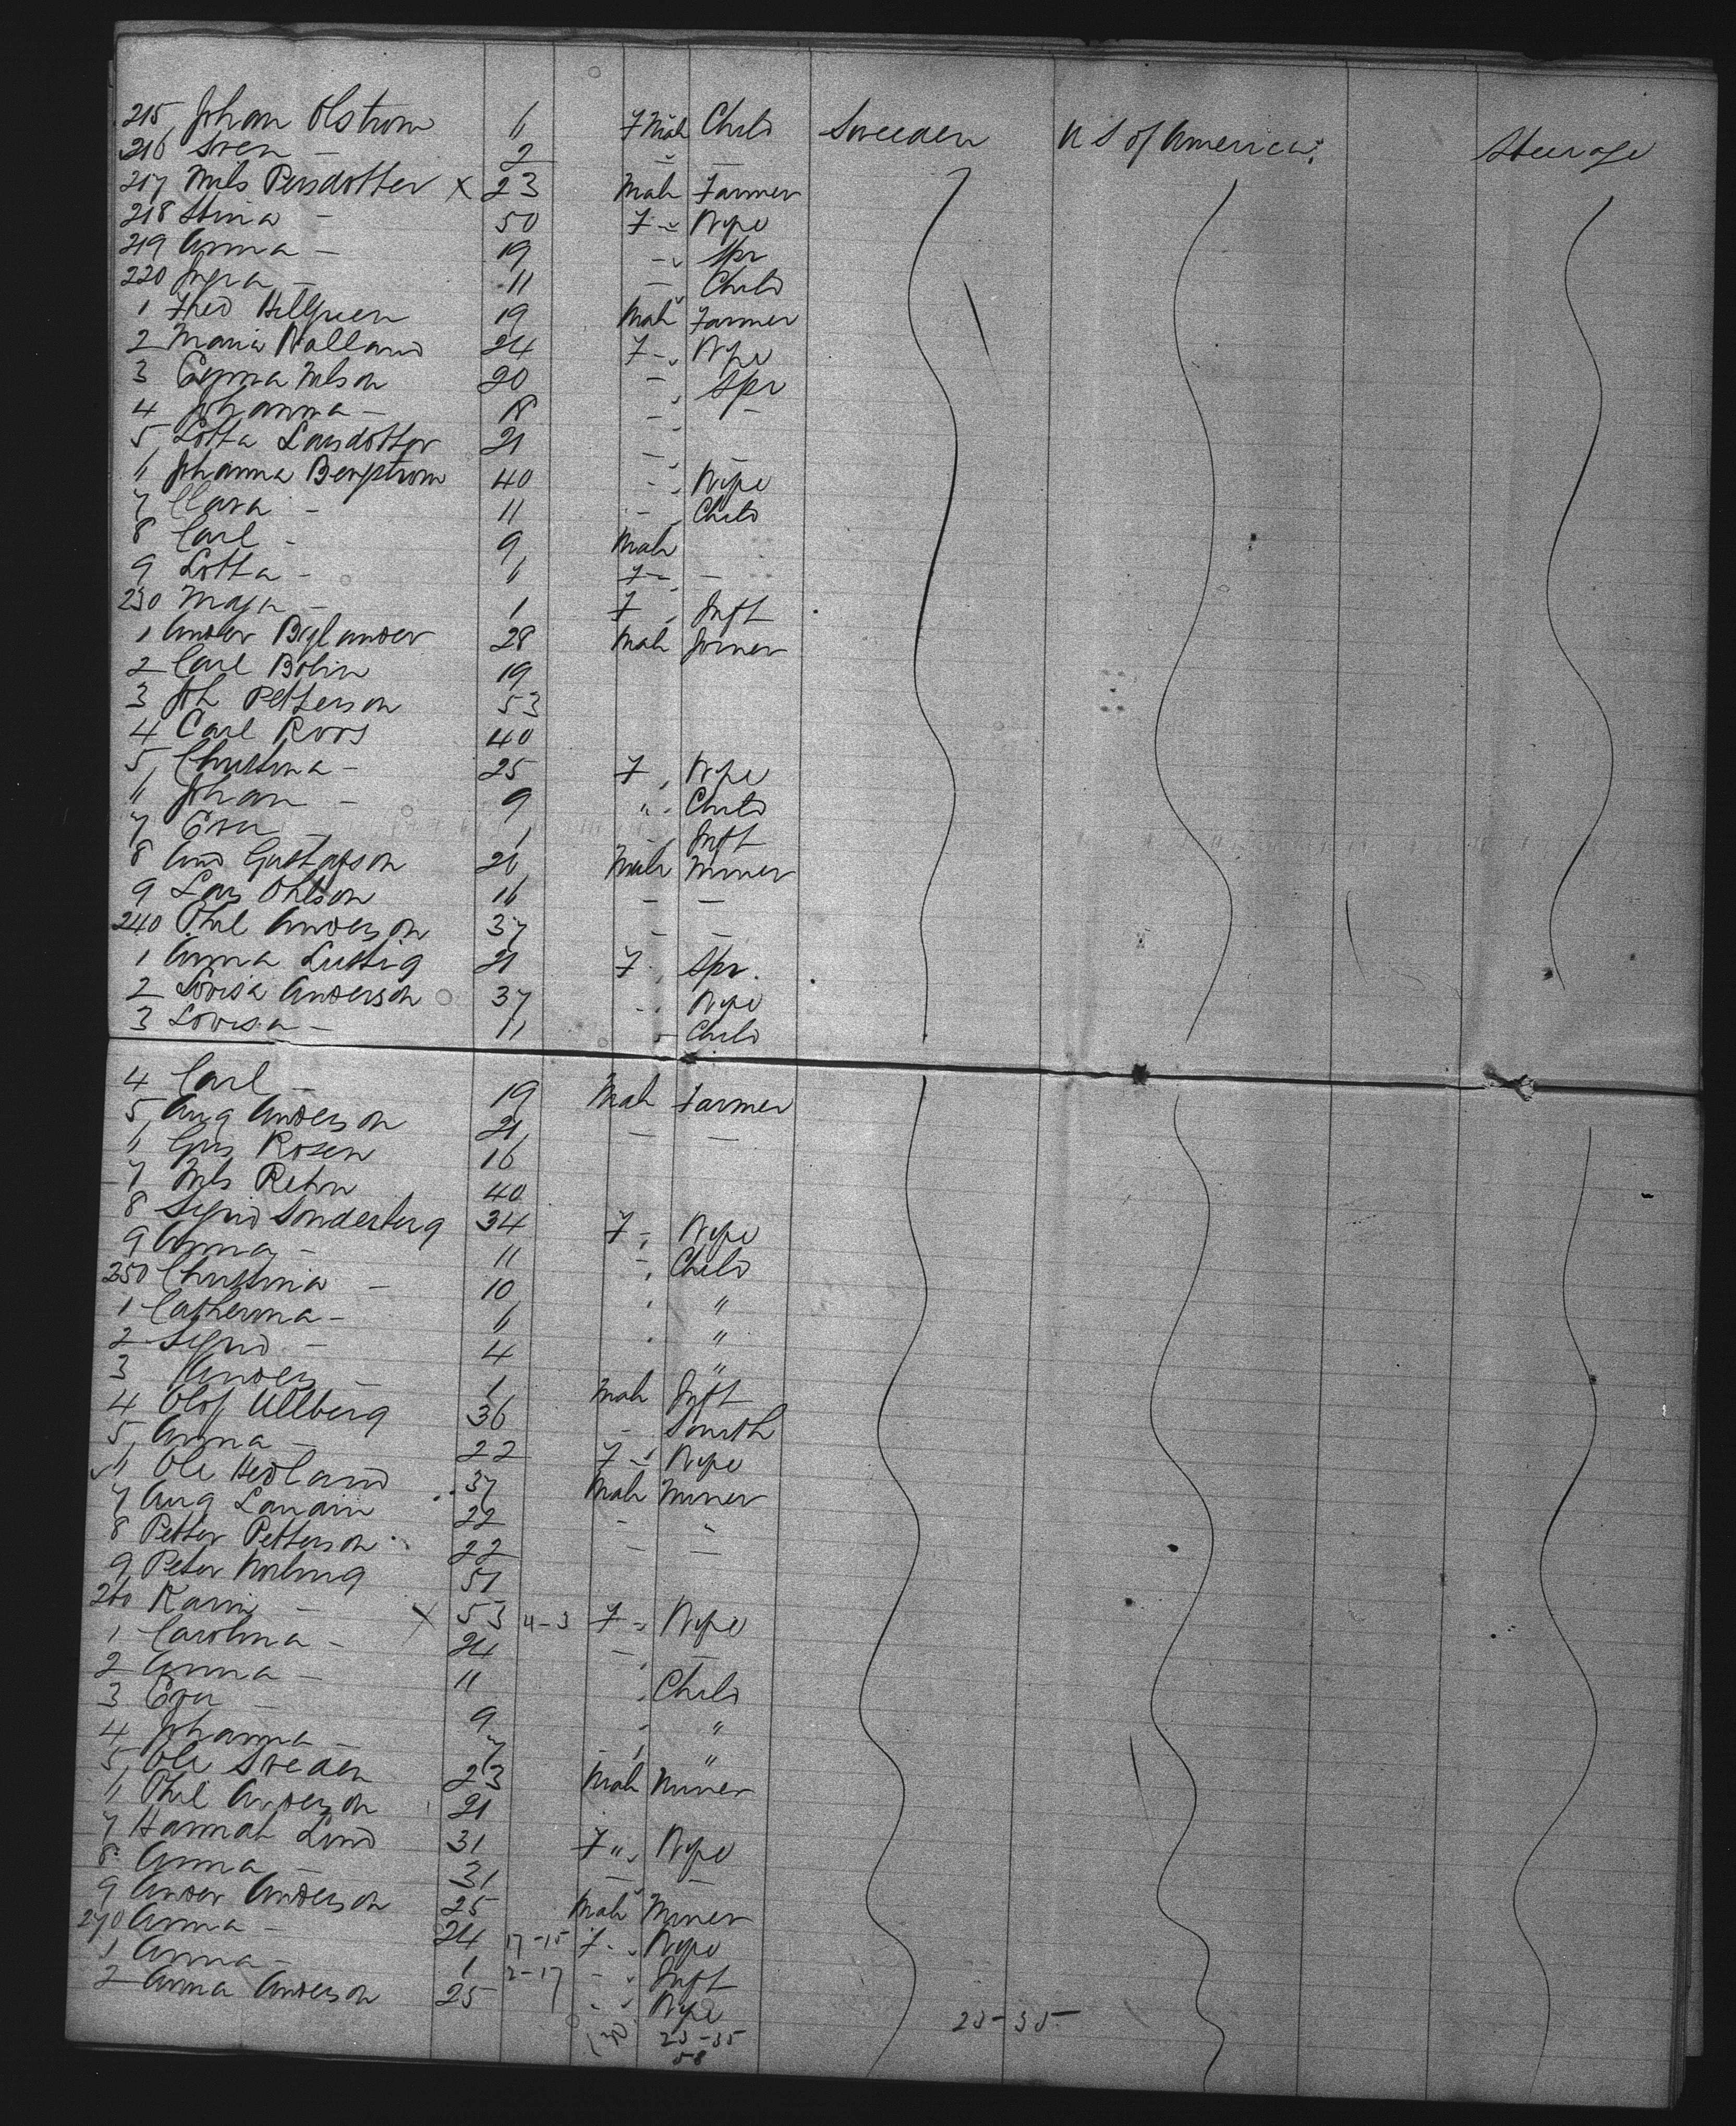 215 Johan Olstrom 6 F Male Child Sweden U S of America Steerage
216 Sven - 2 - -
217 Nils Persdotter x 23 Male Farmer
218 Stina - 50 F " Wife
219 Anna - 19 - " Spr
220 Ingra - 11 - Child
1 Fred Hellgren 19 Male Farmer
2 Maria Walland 24 F - " Wife
3 Emma Nelson 20 - " Spr
4 Johanna - 18 - " -
5 Lotta Larsdotter 21 - " -
6 Johanna Bergstrom 40 - " Wife
7 Clara - 11 - " Child
8 Carl - 9 Male
9 Lotta - 6 F - " -
230 Maja - 1 F " Inft
1 Ander Bylander 28 Male Joiner
2 Carl Bolin 19
3 Joh Petterson 53
4 Carl Roos 40
5 Christina - 25 F " Wife
6 Johan - 9 " " Child
7 Eva - 1 - " Inft
8 And Gustafson 26 Male Miner
9 Lars Ohlson 16 - -
240 Phil Anderson 37 - -
1 Anna Lustig 21 F " Spr
2 Lovisa Anderson 37 - " Wife
3 Lovisa - 11 - Child
4 Carl - 19 Male Farmer
5 Aug Anderson 21 - -
6 Gus Rosen 16
7 Nils Rehn 40
8 Sigrid Sonderberg 34 F - " Wife
9 Anna - 11 - " Child
250 Christina - 10 " "
1 Catherina - 6 " "
2 Sigrid - 4 "
3 Anders - 1 Male Inft
4 Olof Ullberg 36 - Smith
5 Anna - 22 F - " Wife
6 Ole Hedland 37 Male Miner
7 Aug 22 - "
8 Petter Petterson 22 - -
9 Peter Norling 51
260 Karin - x 53 4-3 F - " Wife
1 Carolina - 24 - " -
2 Anna - 11 " Child
3 Eva - 9 - "
4 Johanna - 7 - " "
5 Ole Sveden 23 Male Miner
6 Phil Anderson 21
7 Hannah Lind 31 F " " Wife
8 Anna - 31 - " -
9 Ander Anderson 25 Male Miner
270 Anna - 24 17-15 F - " Wife
1 Anna - 1 2-17 - " Inft
2 Anna Anderson 25 - " Wife
23-35 23-35
58